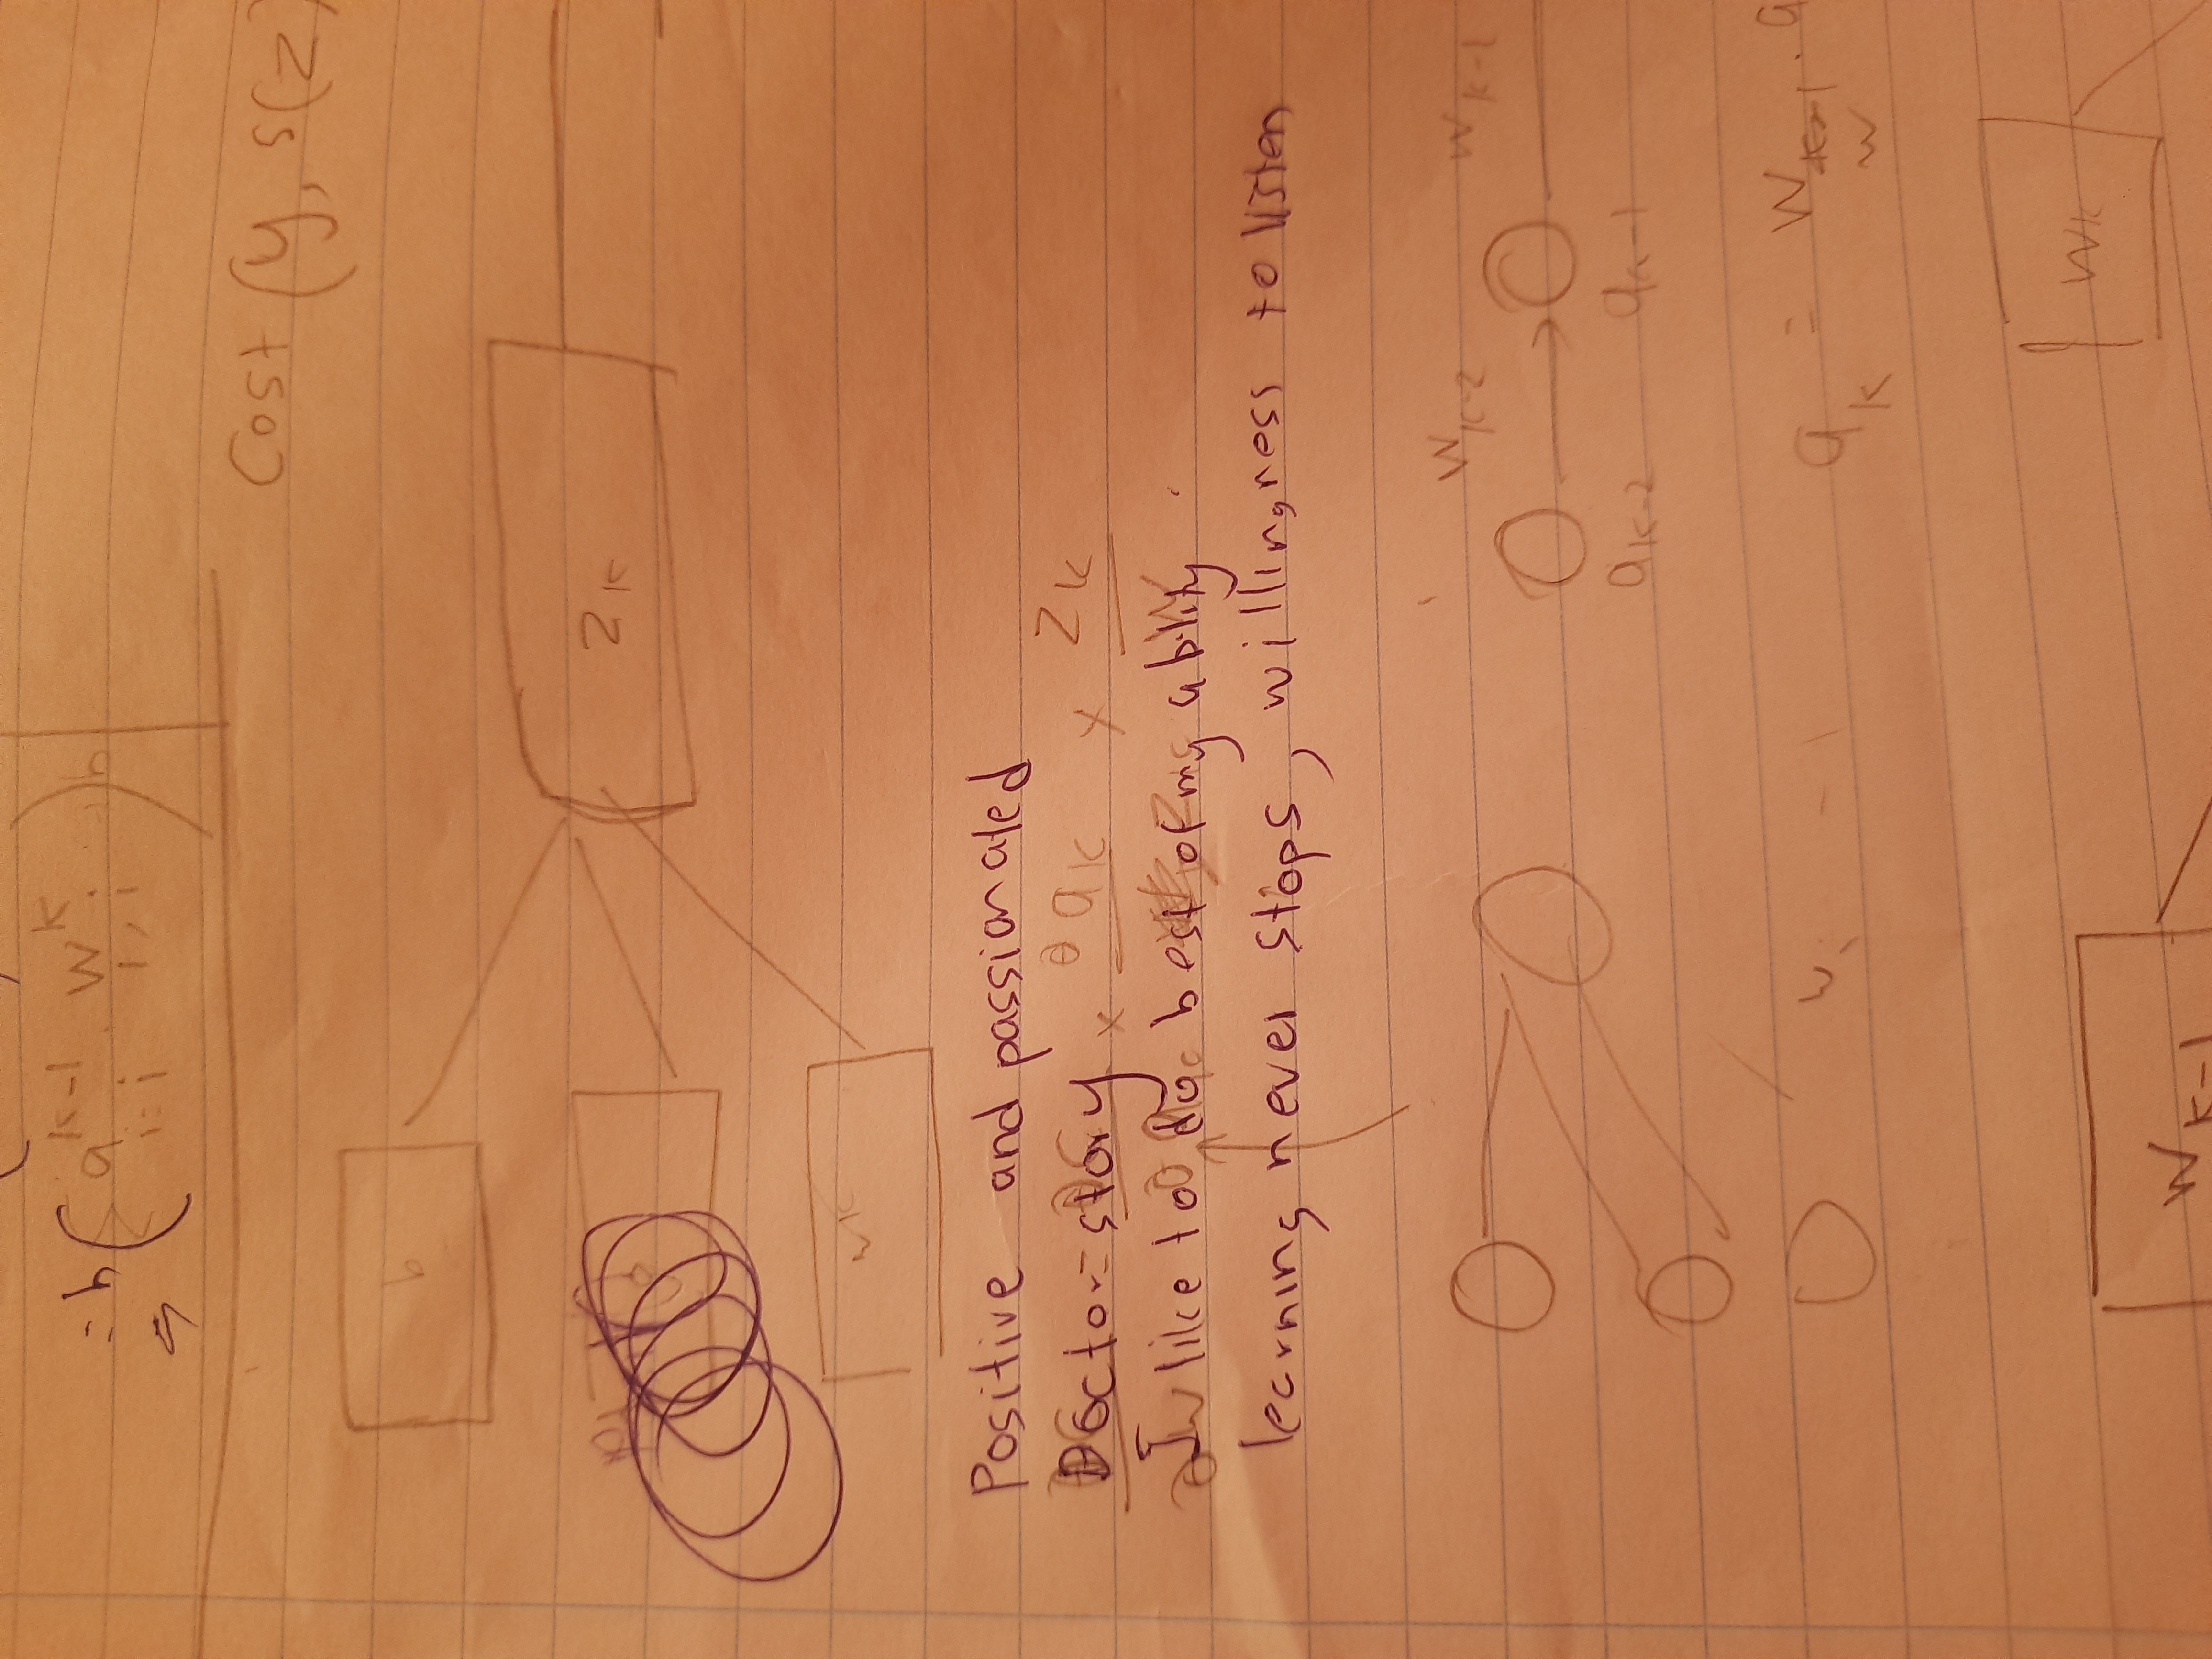 = b ( Σ a^{k-1}_{i=i} . W^k_{i,i} ) b
⇒
Cost (y, s(z)
b
z_k
w^k
Positive and passionated
Doctor = story × ∂a_k × z_k
I like to do best of my ability.
learning never stops, willingness to listen
W_{k-2} W_{k-1}
a_{k-2} a_{k-1}
w_i - 1
a_k = W_{k-1} . a
w
W_k
W_{k-1}